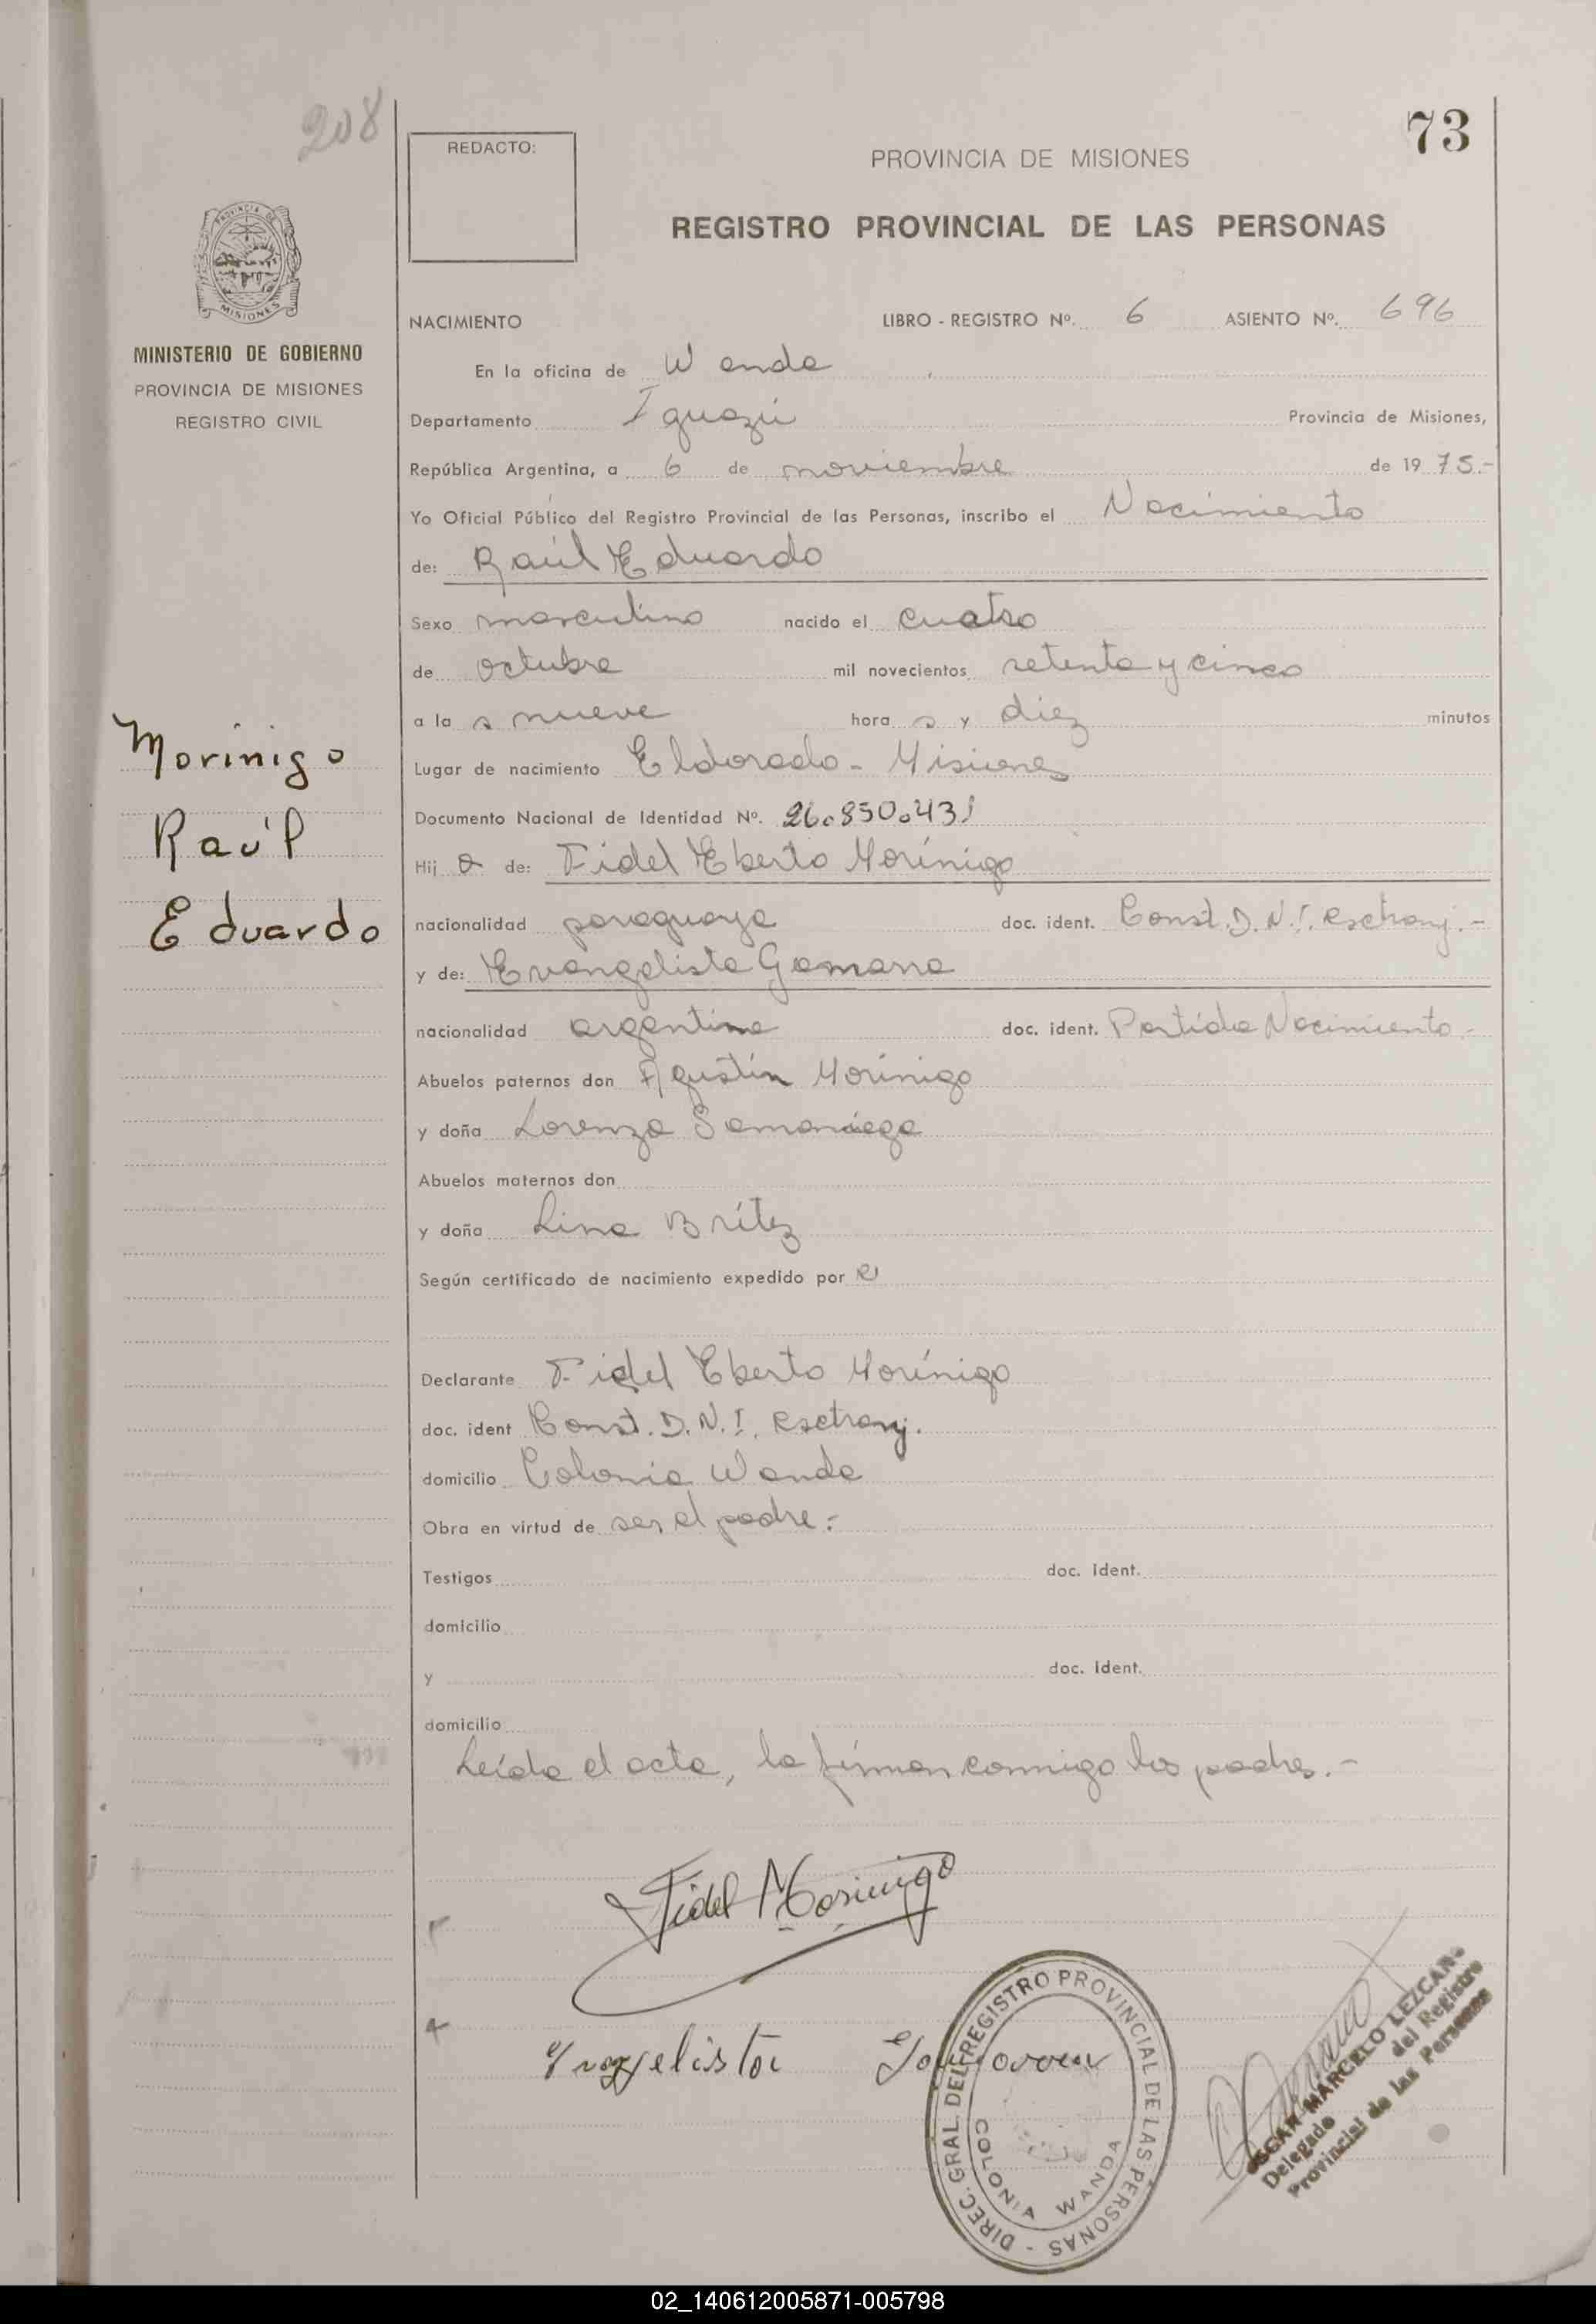 208
73
REDACTO:
PROVINCIA DE MISIONES
REGISTRO PROVINCIAL DE LAS PERSONAS
PROVINCIA DE
MISIONES
MINISTERIO DE GOBIERNO
PROVINCIA DE MISIONES
REGISTRO CIVIL
NACIMIENTO LIBRO - REGISTRO Nº. 6 ASIENTO Nº. 696
En la oficina de Wanda
Departamento Iguazú Provincia de Misiones,
República Argentina, a 6 de noviembre de 1975.-
Yo Oficial Público del Registro Provincial de las Personas, inscribo el Nacimiento
de: Raúl Eduardo
Sexo masculino nacido el cuatro
de octubre mil novecientos setenta y cinco
a la s nueve hora s y diez minutos
Lugar de nacimiento Eldorado - Misiones
Morínigo
Raúl
Eduardo
Documento Nacional de Identidad Nº. 26.850.431
Hij o de: Fidel Eberto Morínigo
nacionalidad paraguaya doc. ident. Const. D.N.I. Esctranj.-
y de: Evangelista Gamarra
nacionalidad argentina doc. ident. Partida Nacimiento.
Abuelos paternos don Agustín Morínigo
y doña Lorenza Samaniega
Abuelos maternos don
y doña Lina Brítez
Según certificado de nacimiento expedido por el
Declarante Fidel Eberto Morínigo
doc. ident Const. D.N.I. Esctranj.
domicilio Colonia Wanda
Obra en virtud de ser el padre.-
Testigos doc. Ident.
domicilio
y doc. Ident.
domicilio
Leída el acta, la firman conmigo los padres.-
Fidel Morinigo
DIREC. GRAL. DEL REGISTRO PROVINCIAL DE LAS PERSONAS -
COLONIA WANDA
OSCAR MARCELO LEZCANO
Delegado del Registro
Provincial de las Personas
02_140612005871-005798